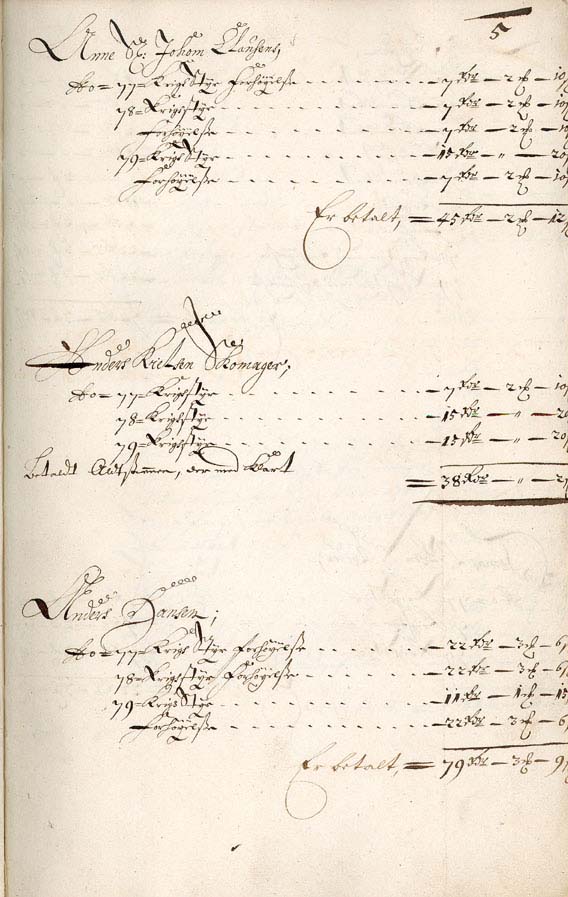 5
Anne Sl: Johom Clausens,
Ao = 77 = Krigs Styr Forhøyelse - 7 Rdr - 2 ℳ - 10
78 = Krigsstyr - 7 Rdr - 2 ℳ - 10
Forhøyelse - 7 Rdr - 2 ℳ - 10
79 = Krigs Styr - 15 Rdr - " - 20
Forhøyelse - 7 Rdr - 2 ℳ - 10
Er betalt, = 45 Rdr - 2 ℳ - 12
Anders Skomager;
Ao = 77 = Krigsstyr - 7 Rdr - 2 ℳ - 10
78 = Krigsstyr - 15 Rdr - " - 20
79 = Krigsstyr - 15 Rdr - " - 20
Betaldt Altsammen, der med Klart
= 38 Rdr - " - 2
Anders Hansen;
Ao = 77 = Krigs Styr Forhøyelse - 22 Rdr - 3 ℳ - 6
78 = Krigsstyr Forhøyelse - 22 Rdr - 3 ℳ - 6
79 = Krigs Styr - 11 Rdr - 1 ℳ - 15
Forhøyelse - 22 Rdr - 3 ℳ - 6
Er betalt, = 79 Rdr - 3 ℳ - 9